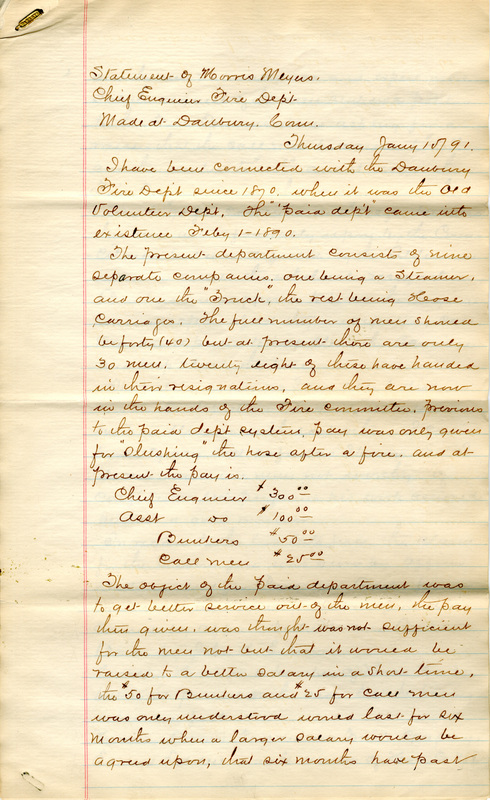 Statement of Morris Meyers.
Chief Engineer Fire Dept
Made at Danbury. Conn.
Thursday Jany 15/91.
I have been connected with the Danbury
Fire Dept since 1870. when it was the Old
Volunteer Dept. The "paid dept" came into
existence Feby 1-1890.
The present department consists of nine
separate companies. one being a Steamer.
and one the "Truck", the rest being Hose
Carriages. The full number of men should
be forty (40) but at present there are only
30 men. twenty eight of these have handed
in their resignations, and they are now
in the hands of the Fire committee. Previous
to the paid dept system, pay was only given
for "slushing" the hose after a fire. and at
present the pay is.
Chief Engineer $300.00
Asst do $100.00
Bunkers $50.00
Call men $25.00
The object of the paid department was
to get better service out of the men, the pay
then given. was thought was not sufficient
for the men not but that it would be
raised to a better salary in a short time,
the $50 for Bunkers and $25 for Call men
was only understood would last for six
months when a larger salary would be
agreed upon, that six months have past